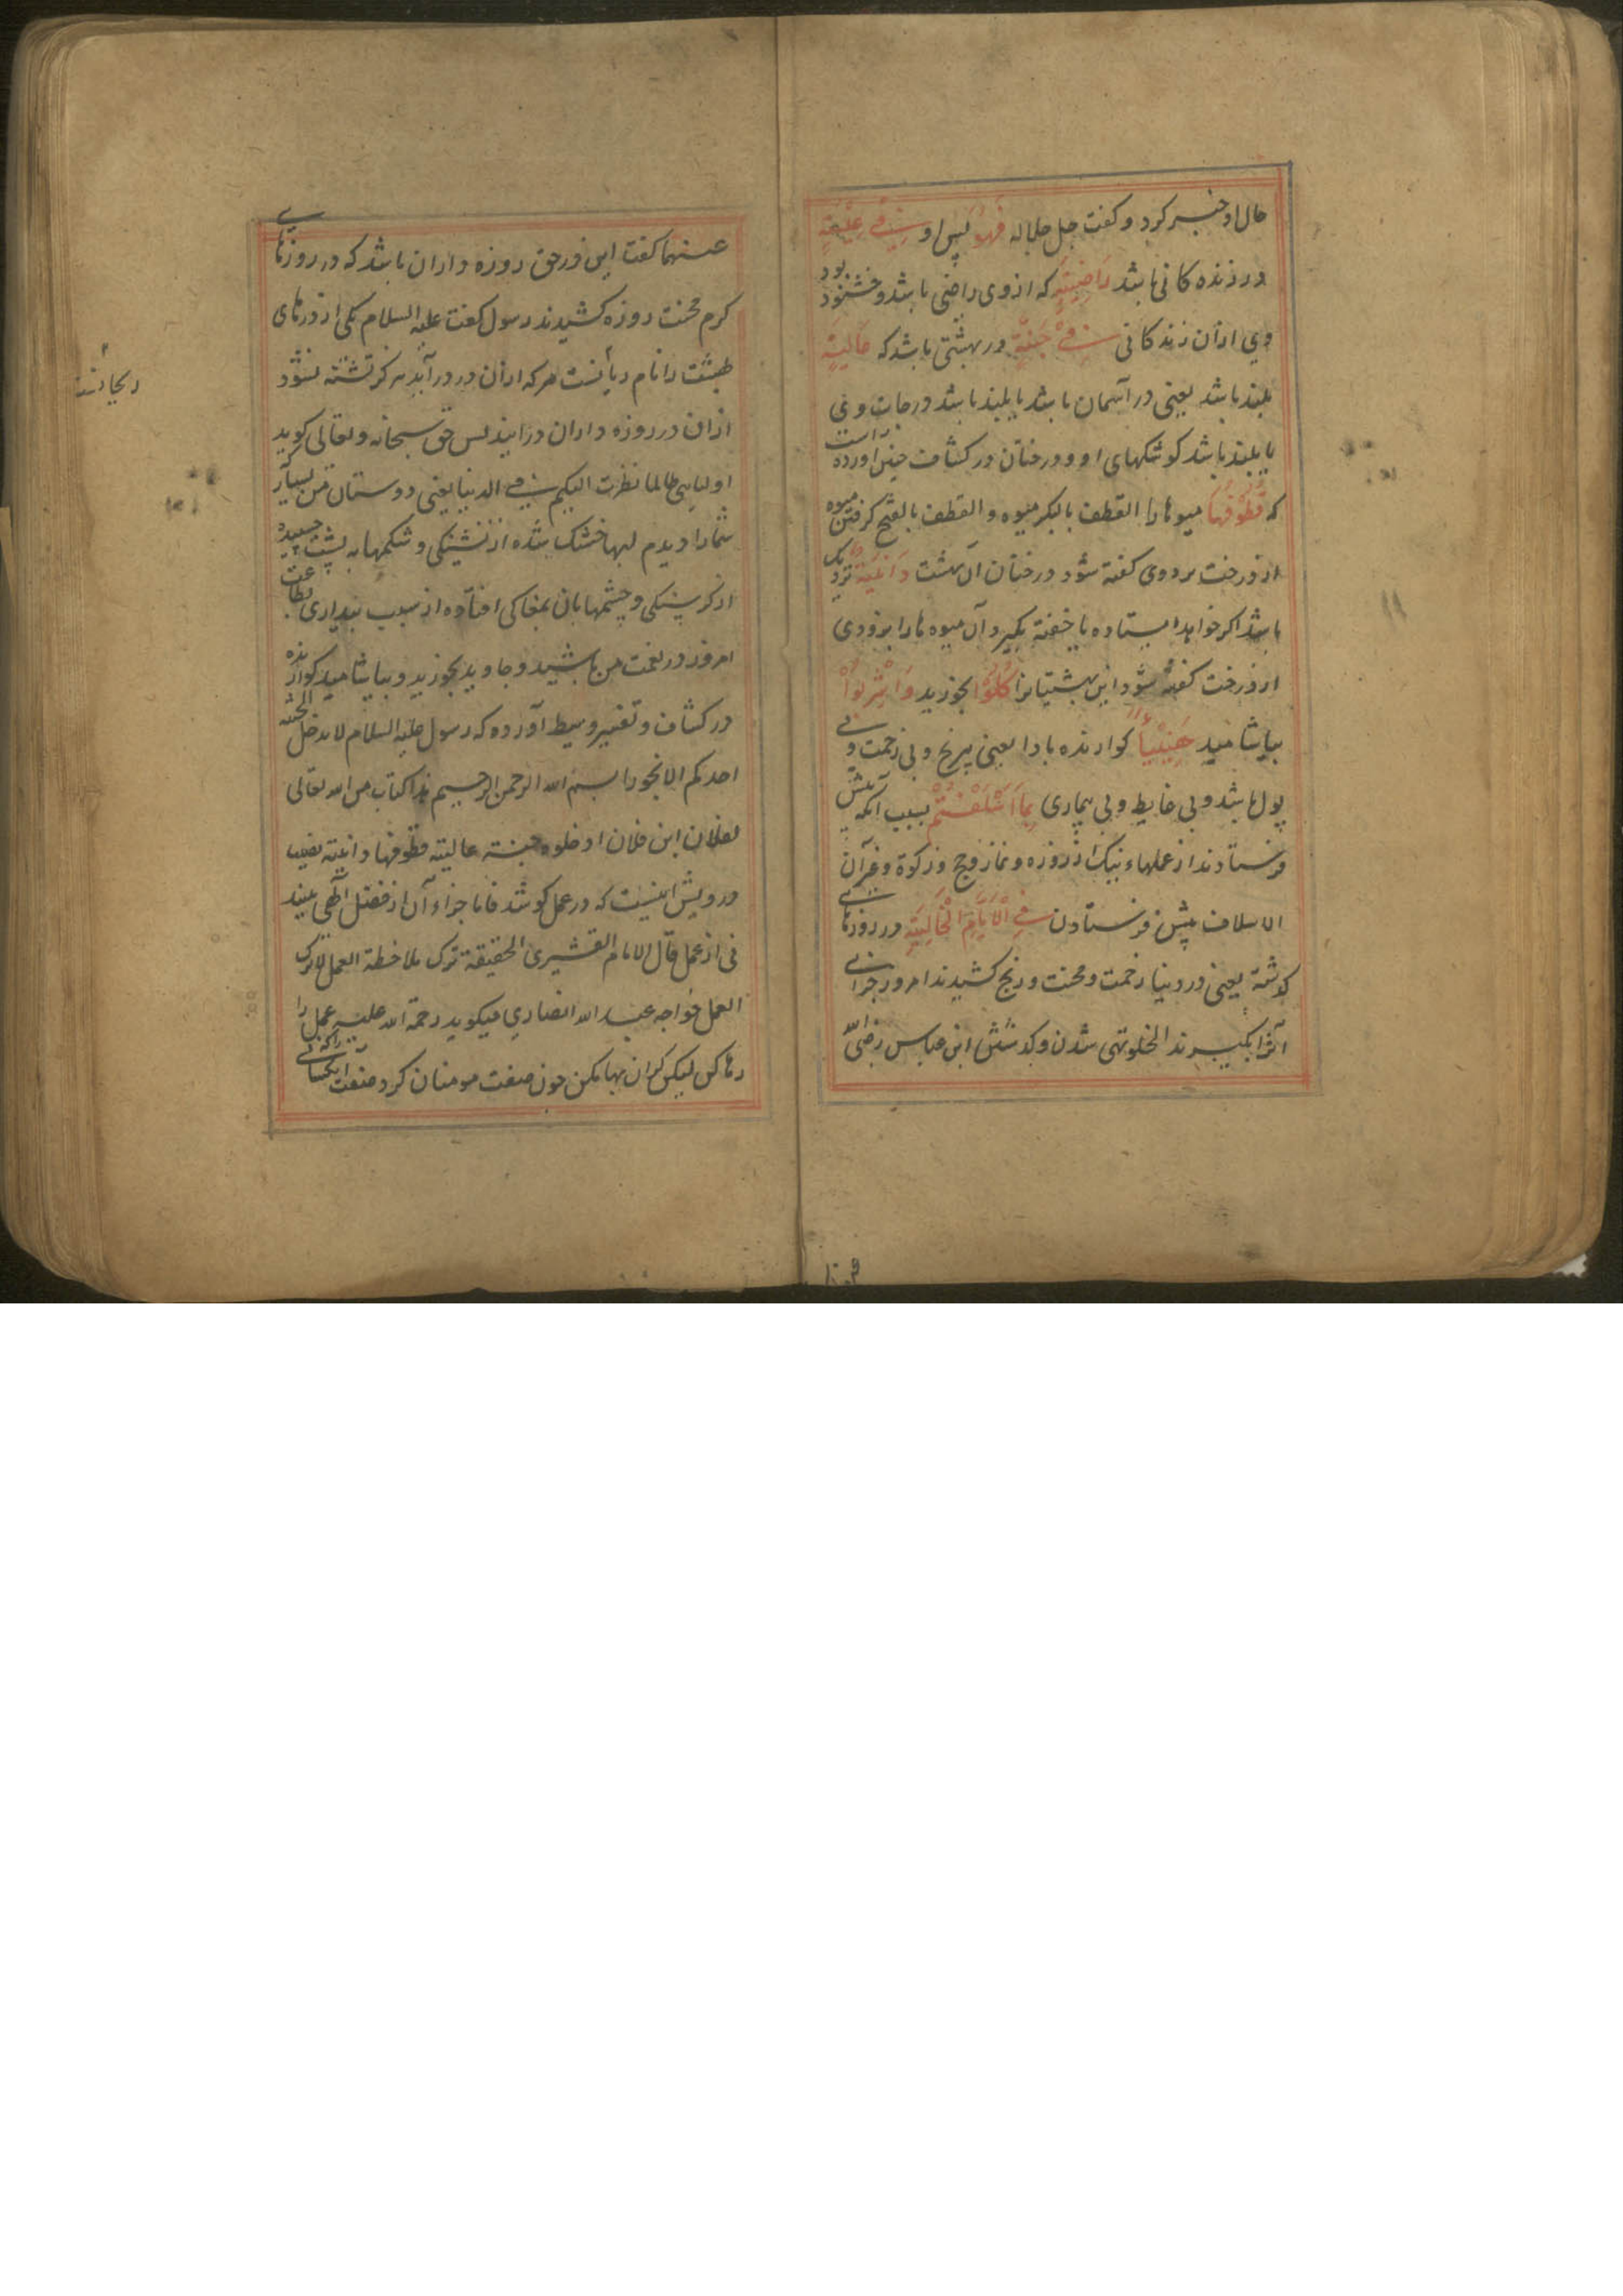 حال او خبر کرد و کفت جل جلاله فَهُوَ پس او فِي عِيْشَةٍ
در زنده کانی باشد رَاضِيَةٍ که از وی راضی باشد و خشنود بود
وي ازان زندکانی فِيْ جَنَّةٍ در بهشتی باشد که عَالِيَةٍ
بلند باشد یعنی در آسمان باشد یا بلند باشد درجات وی
یا بلند باشد کوشکهای او و درختان در کشاف چنین اورده است
که قُطُوْفُهَا میوها را القطف بالکسر میوه و القطف بالفتح کرفتن میوه
از درخت بر دوی کفته شود درختان آن بهشت دَانِيَةٌ نزدیک
باشد اکر خواهد ایستاده یا خفته بکیرد آن میوه ها را بزودی
از درخت کفته شود این بهشتیانرا كُلُوْا بخورید وَاشْرَبُوْا
بیاشامید هَنِيْئًا کوارنده بادا یعنی بی رنج و بی زحمت و بی
بول باشد و بی غایط و بی بیماری بِمَا اَسْلَفْتُمْ بسبب آنکه پیش
فرستادند از عملهاء نیک از روزه و نماز و حج و زکوة و قرآن
الاسلاف پیش فرستادن فِي الْاَيَّامِ الْخَالِيَةِ در روزهای
کذشته یعنی در دنیا زحمت و محنت و رنج کشیدند امروز جزای
آنرا بکیرند الخلو تهی شدن و کذشتن ابن عباس رضی الله
عنهما کفت این در حق روزه داران باشد که در روزهای
کرم محنت روزه کشیدند رسول کفت علیه السلام یکی از درهای
بهشت را نام ریانست هر که ازان در درآید هرکز تشنه نشود
ازان در روزه داران درایند پس حق سبحانه و تعالی کوید
اولیایی طالما نظرت الیکم فی الدنیا یعنی دوستان من بسیار
شمارا دیدم لبها خشک شده از تشنکی و شکمها به پشت چسپیده
از کرسنکی و چشمهاتان بمغاکی افتاده از سبب بیداری بطاعت
امروز در نعمت من باشید و جاوید بخورید و بیاشامید کوارنده
در کشاف و تفسیر وسیط آورده که رسول علیه السلام لا یدخل الجنة
احدکم الا بجواز بسم الله الرحمن الرحیم هذا کتاب من الله تعالی
لفلان ابن فلان ادخلوه جنة عالیة قطوفها دانیة نصیب
درویش اینست که در عمل کوشد فاما جزاء آن از فضل آلهی بیند
نی از عمل قال الامام القشیری الحقیقة ترک ملاحظة العمل لا ترک
العمل خواجه عبد الله انصاری میکوید رحمة الله علیه عمل را
رها کن لیکن کران بها مکن چون صفت مومنان کرد صفت
ریحانند